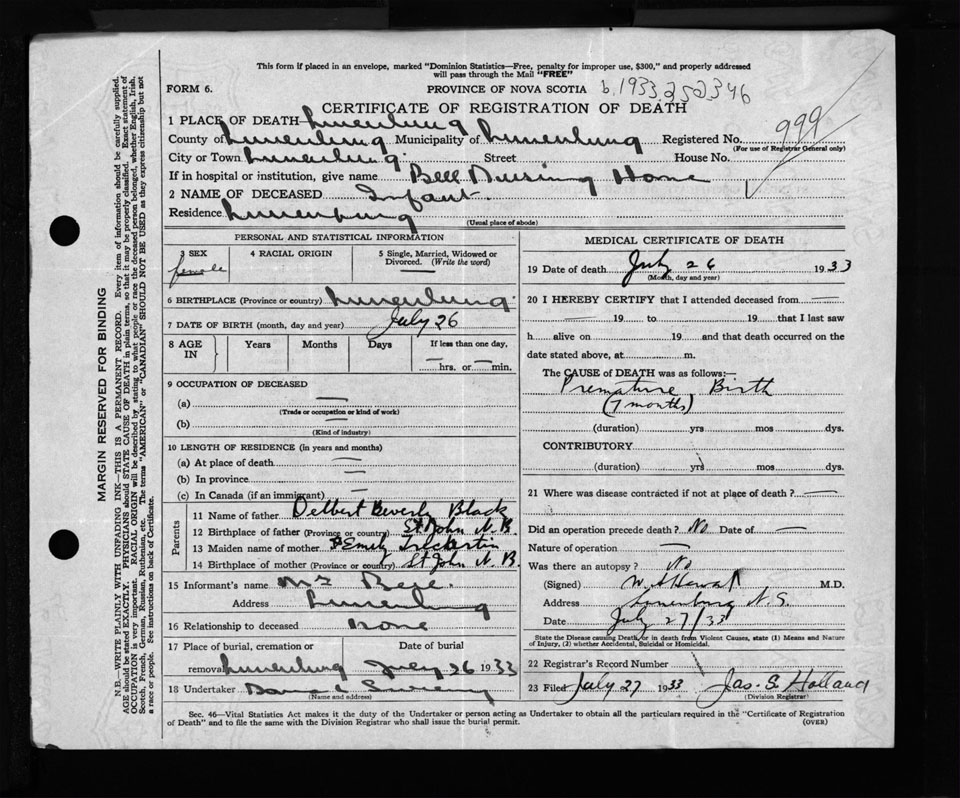 This form if placed in an envelope, marked "Dominion Statistics—Free, penalty for improper use, $300," and properly addressed
will pass through the Mail "FREE"
FORM 6. PROVINCE OF NOVA SCOTIA b. 1933 252346
CERTIFICATE OF REGISTRATION OF DEATH
999
1 PLACE OF DEATH—Lunenburg
County of Lunenburg Municipality of Lunenburg Registered No.
(For use of Registrar General only)
City or Town Lunenburg Street House No.
If in hospital or institution, give name Bell Nursing Home
2 NAME OF DECEASED Infant
Residence Lunenburg
(Usual place of abode)
PERSONAL AND STATISTICAL INFORMATION
3 SEX 4 RACIAL ORIGIN 5 Single, Married, Widowed or
Divorced. (Write the word)
female
6 BIRTHPLACE (Province or country) Lunenburg
7 DATE OF BIRTH (month, day and year) July 26
8 AGE IN Years Months Days If less than one day,
— hrs. or — min.
9 OCCUPATION OF DECEASED
(a) —
(Trade or occupation or kind of work)
(b) —
(Kind of industry)
10 LENGTH OF RESIDENCE (in years and months)
(a) At place of death —
(b) In province —
(c) In Canada (if an immigrant) —
Parents
11 Name of father Delbert Beverly Black
12 Birthplace of father (Province or country) St John N.B.
13 Maiden name of mother Emily
14 Birthplace of mother (Province or country) St John N.B.
15 Informant's name Mrs
Address Lunenburg
16 Relationship to deceased none
17 Place of burial, cremation or Date of burial
removal Lunenburg July 26 1933
18 Undertaker
(Name and address)
MEDICAL CERTIFICATE OF DEATH
19 Date of death July 26 1933
(Month, day and year)
20 I HEREBY CERTIFY that I attended deceased from —
— 19 to 19 that I last saw
h alive on 19 and that death occurred on the
date stated above, at m.
The CAUSE of DEATH was as follows:—
Premature Birth
(7 months)
(duration) yrs mos dys.
CONTRIBUTORY
(duration) yrs mos dys.
21 Where was disease contracted if not at place of death? —
Did an operation precede death? No Date of —
Nature of operation —
Was there an autopsy? No
(Signed) M.D.
Address Lunenburg N.S.
Date July 27/33
State the Disease causing Death, or in death from Violent Causes, state (1) Means and Nature
of Injury, (2) whether Accidental, Suicidal or Homicidal.
22 Registrar's Record Number
23 Filed July 27 1933 Jas. S. Holland
(Division Registrar)
Sec. 46—Vital Statistics Act makes it the duty of the Undertaker or person acting as Undertaker to obtain all the particulars required in the "Certificate of Registration
of Death" and to file the same with the Division Registrar who shall issue the burial permit. (OVER)
MARGIN RESERVED FOR BINDING
N.B.—WRITE PLAINLY WITH UNFADING INK—THIS IS A PERMANENT RECORD. Every item of information should be carefully supplied.
AGE should be stated EXACTLY. PHYSICIANS should STATE CAUSE OF DEATH in plain terms, so that it may be properly classified. Exact statement of
OCCUPATION is very important. RACIAL ORIGIN will be described by stating to what people or race the deceased person belonged, whether English, Irish,
Scotch, French, German, Russian, Ruthenian, etc. The terms "AMERICAN" or "CANADIAN" SHOULD NOT BE USED as they express citizenship but not
a race or people. See instructions on back of Certificate.